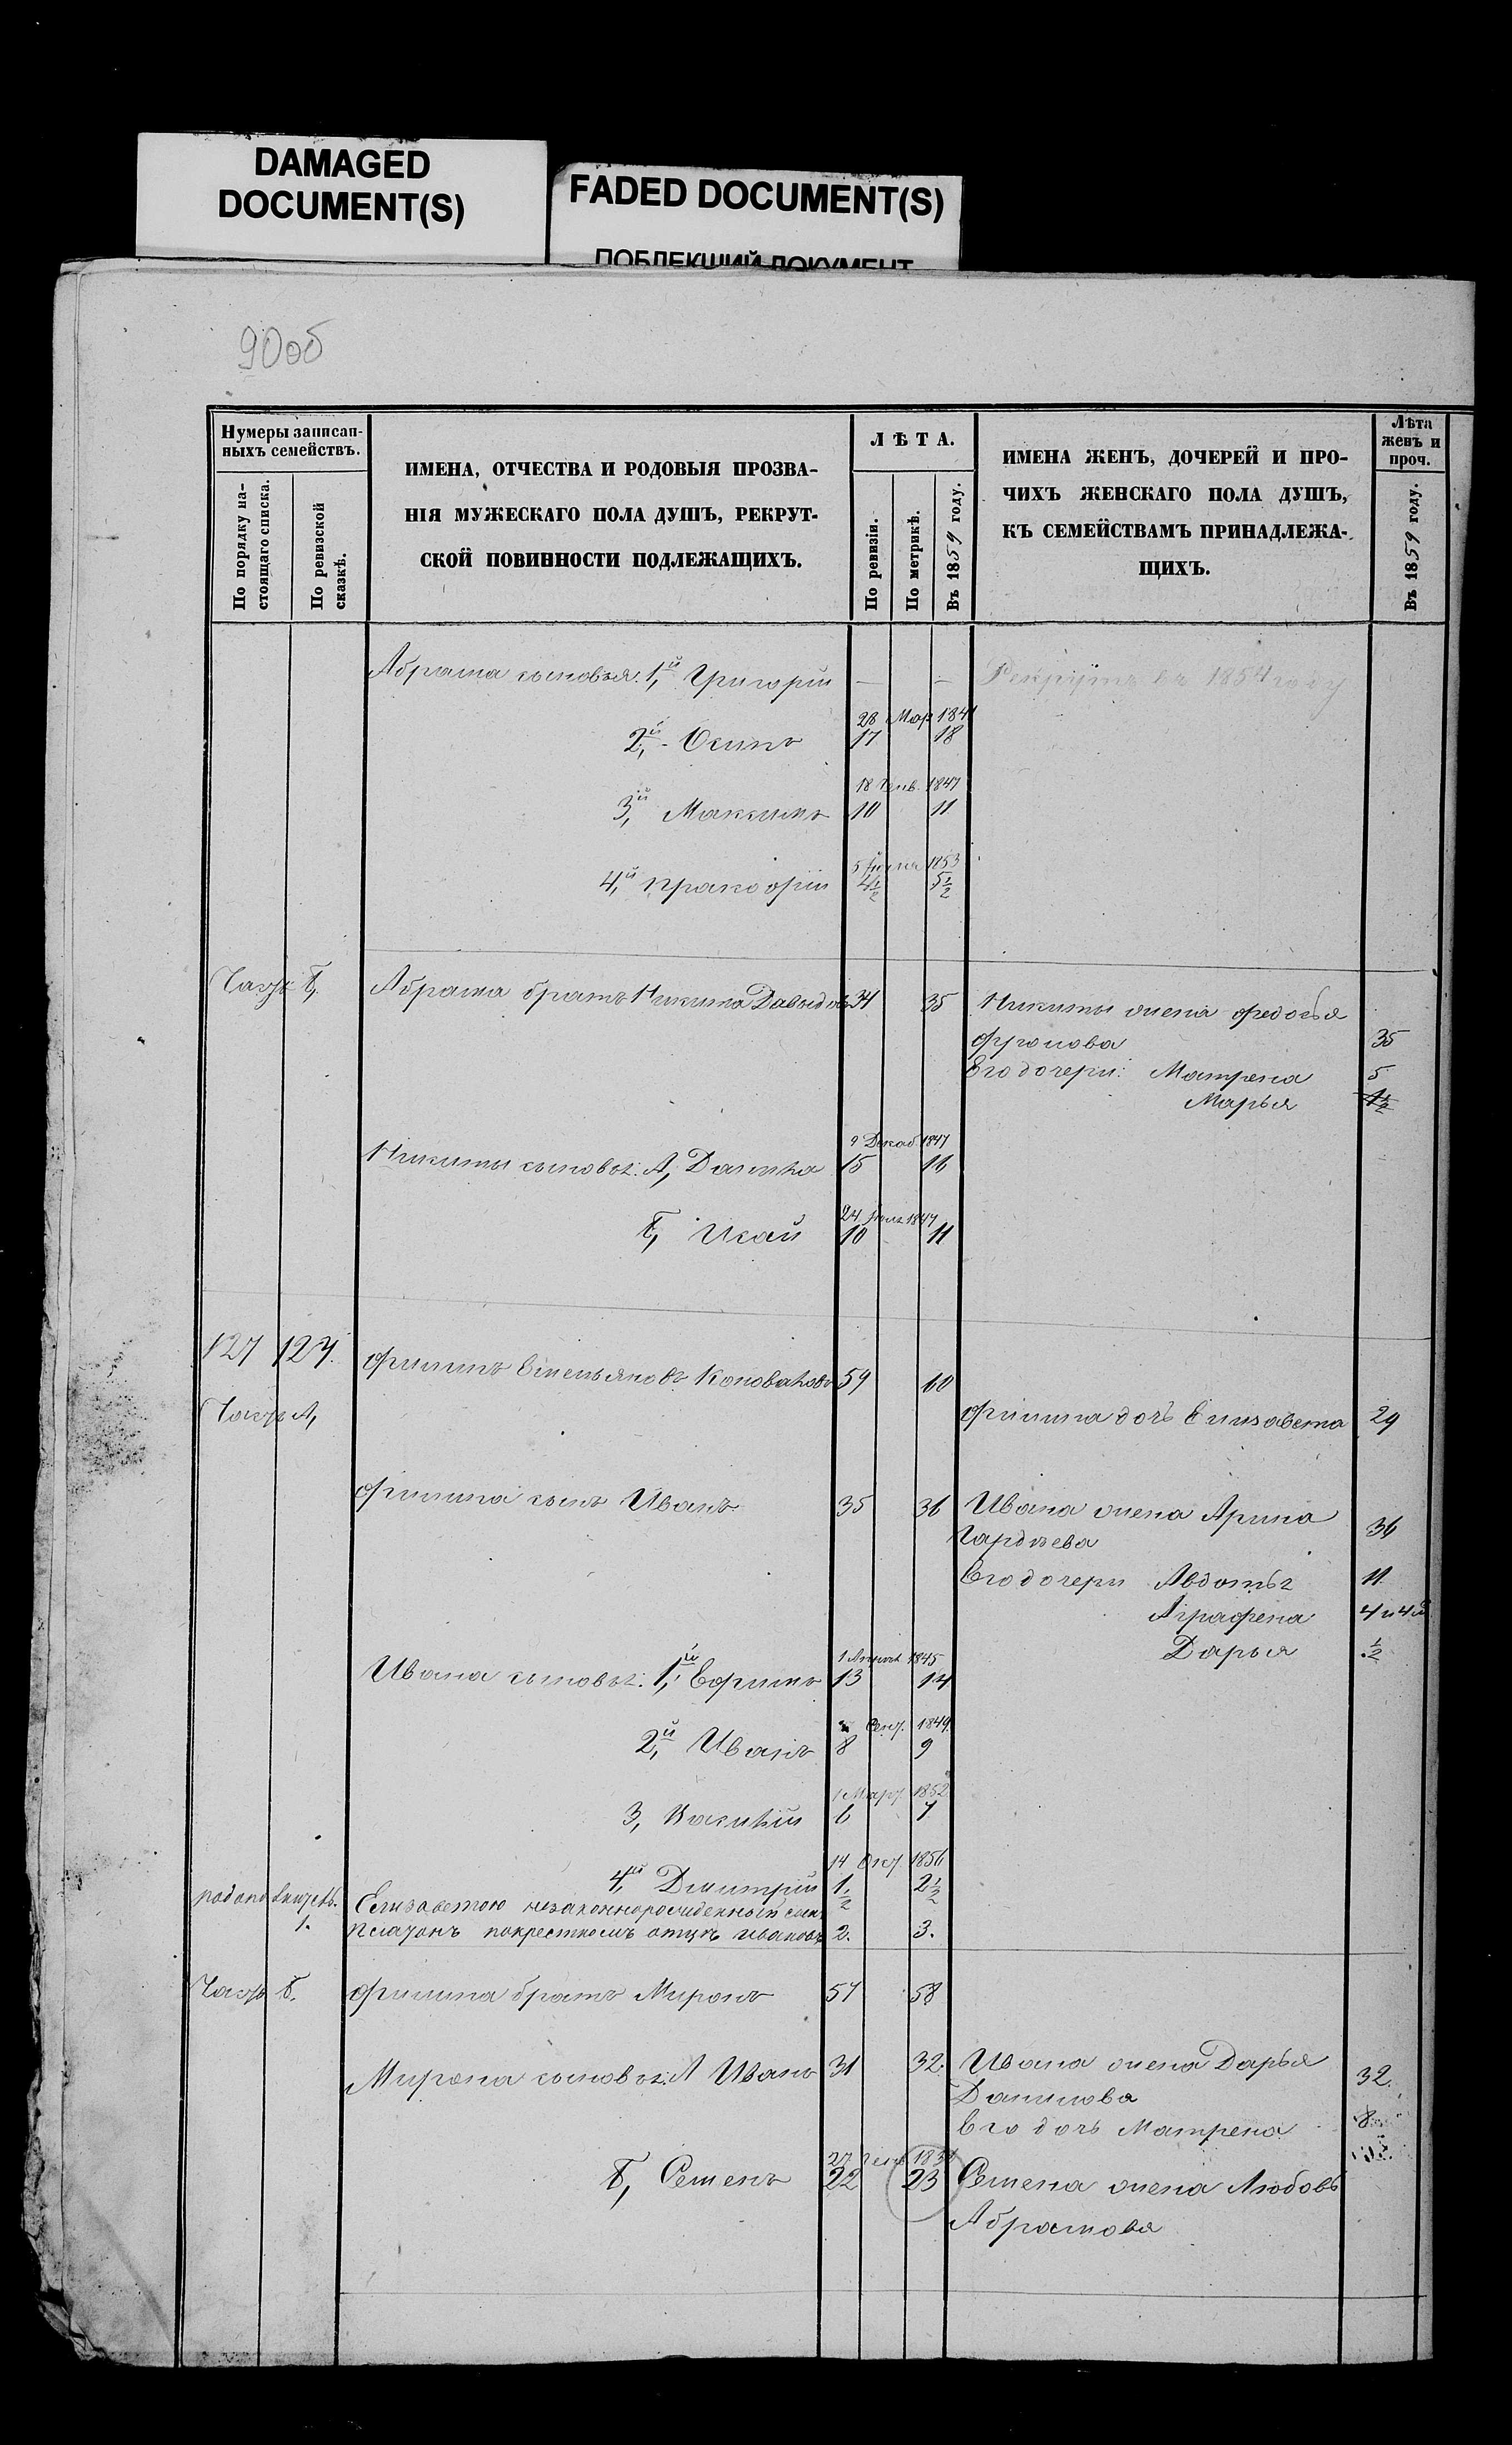 DAMAGED
DOCUMENT(S)
FADED DOCUMENT(S)
ПОБЛЕКШИЙ ДОКУМЕНТ
90об
Нумеры записан-
ныхъ семействъ.
По порядку на-
стоящаго списка.
По ревизской
сказкѣ.
ИМЕНА, ОТЧЕСТВА И РОДОВЫЯ ПРОЗВА-
НІЯ МУЖЕСКАГО ПОЛА ДУШЪ, РЕКРУТ-
СКОЙ ПОВИННОСТИ ПОДЛЕЖАЩИХЪ.
ЛѢТА.
По ревизіи.
По метрикѣ.
Въ 1859 году.
ИМЕНА ЖЕНЪ, ДОЧЕРЕЙ И ПРО-
ЧИХЪ ЖЕНСКАГО ПОЛА ДУШЪ,
КЪ СЕМЕЙСТВАМЪ ПРИНАДЛЕЖА-
ЩИХЪ.
Лѣта
женъ и
проч.
Въ 1859 году.
Абрама сыновья: 1й, Григорій — — Рекрутъ въ 1854 году
28 Мар 1841
2й, Осипъ 17 18
18 Генв. 1847
3й, Максимъ 10 11
5 1853
4й Пракофій 4½ 5½
Часть Б, Абрама братъ Никита Давыдовъ 34 35 Никиты жена Федосья
35
Его дочери: Матрена 5
Марья 1½
9 Декаб
Никиты сыновья: А, Данила 15 16
24 1847
Б, Исай 10 11
127 127. Филипъ Емельяновъ Коноваловъ 59 60
Часть А, Филипа дочь Елизавета 29
Филипа сынъ Иванъ 35 36 Ивана жена Арина
Гордѣева 36
Его дочери Авдотья 11
Аграфена 4
Дарья ½
1 Апрѣл 1845
Ивана сыновья: 1й, Ефимъ 13 14
Сент. 1849
2й, Иванъ 8 9
1 Март 1852
3, Василій 6 7
14 Окт 1856
4й Дмитрій 1½ 2½
1. Елизаветою незаконнорожденный сынъ
Платонъ покрестномъ отцѣ Ивановъ 2. 3.
Часть Б. Филипа братъ Миронъ 57 58
Мирона сыновья: А Иванъ 31 32. Ивана жена Дарья
Данилова 32.
Его дочь Матрена 8
27 Генв
Б, Семенъ 22 23 Семена жена Любовь
Абрамова